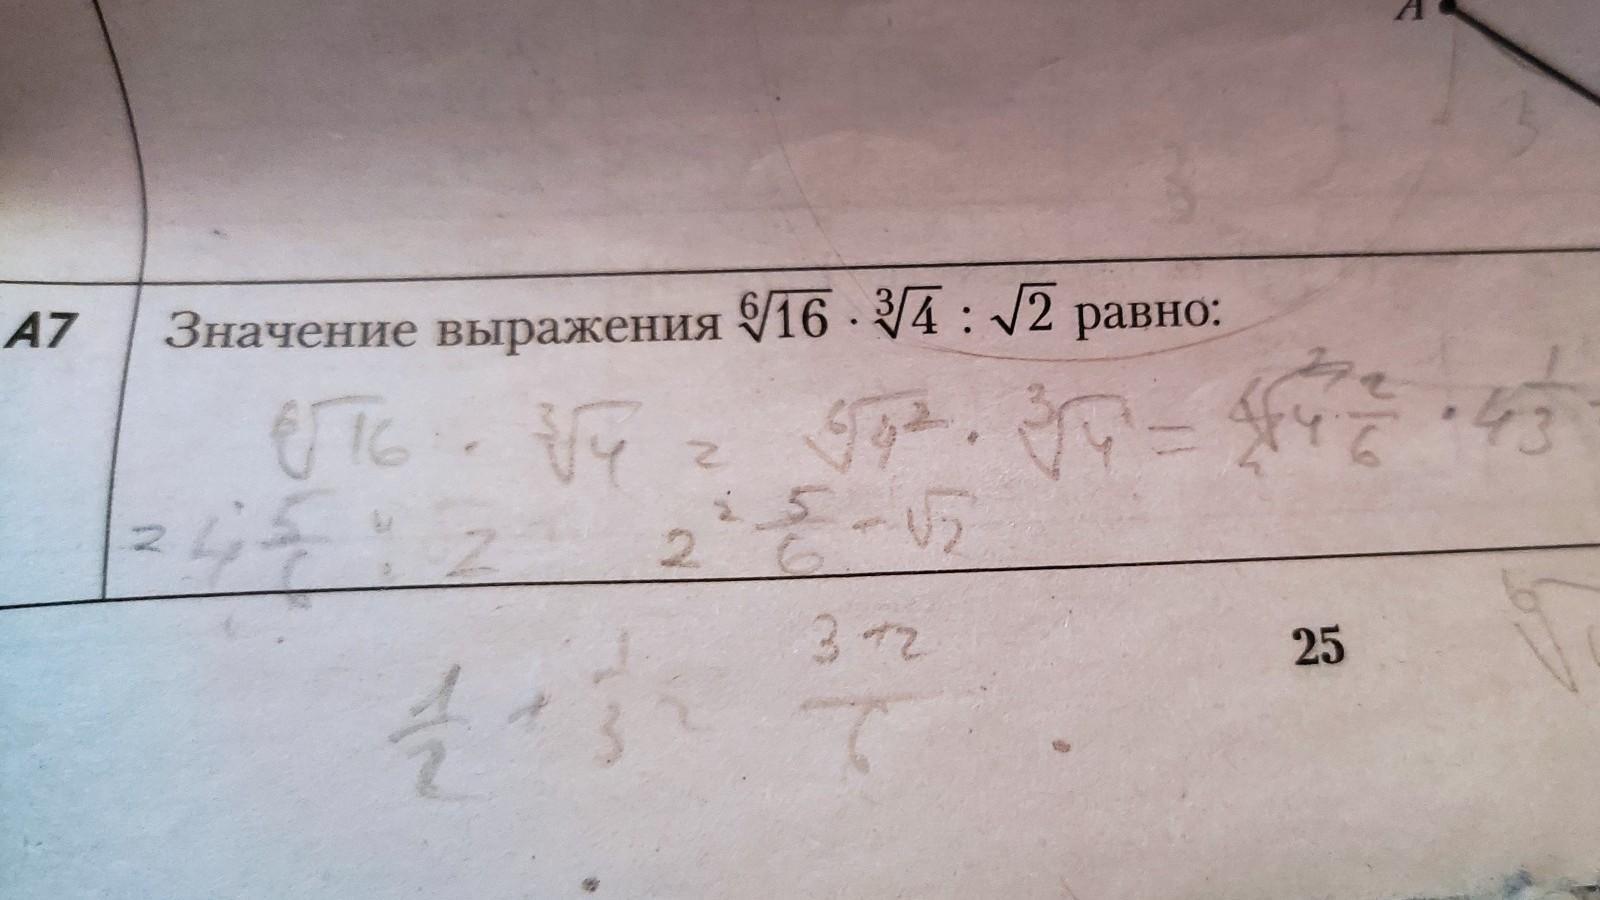 A
3
А7 Значение выражения ⁶√16 · ³√4 : √2 равно:
⁶√16 · ³√4 = ⁶√4² · ³√4 = 4 · 2/6 · 4 1/3
= 4 5/6 : 2 2² 5/6 - √2
1/2 + 1/3 = 3+2/6
25